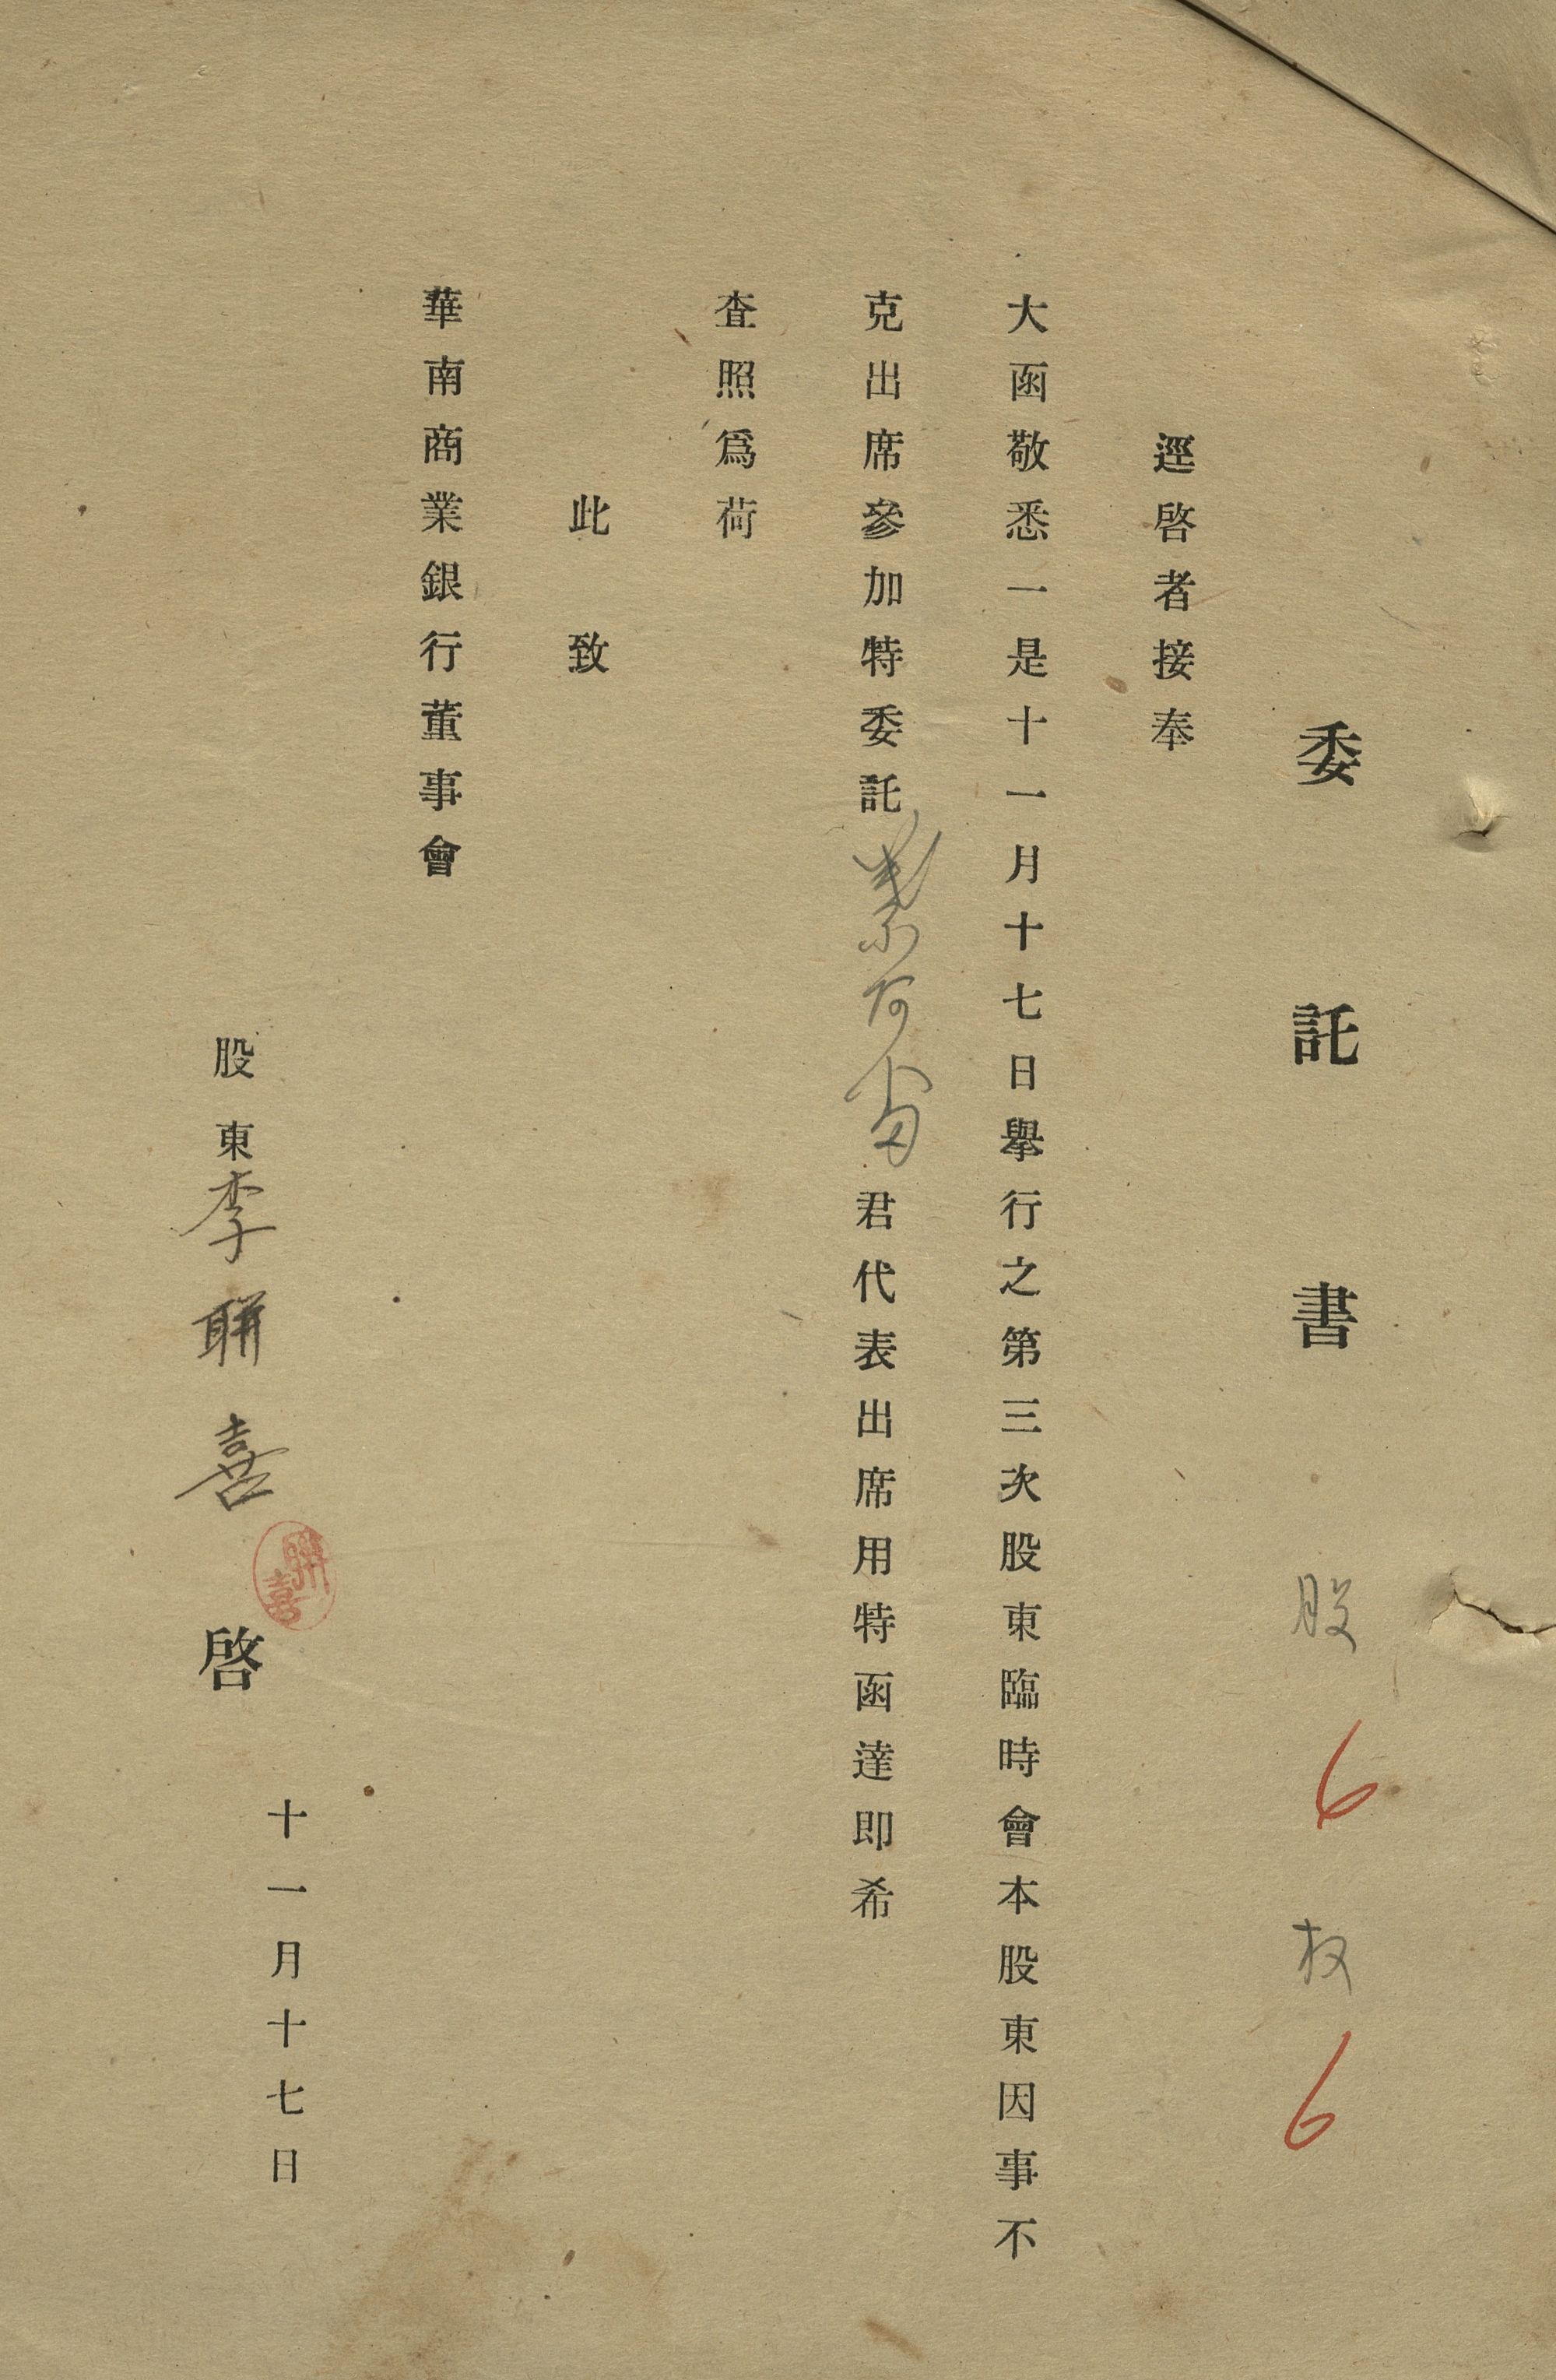 委託書 股 6 权 6
逕啓者接奉
大函敬悉一是十一月十七日舉行之第三次股東臨時會本股東因事不
克出席參加特委託葉阿當君代表出席用特函達即希
查照爲荷
此致
華南商業銀行董事會
股東李聯喜 啓
聯喜
十一月十七日